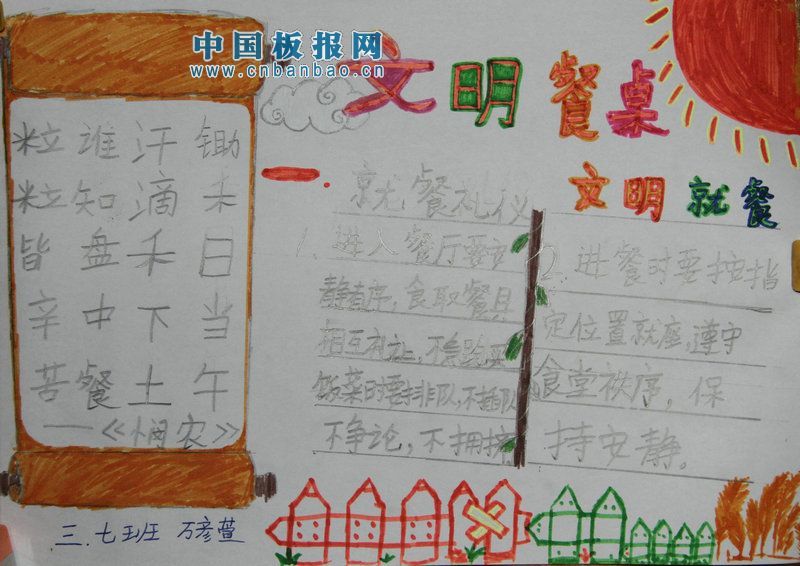 中国板报网
www.cnbanbao.cn
文明餐桌
文明就餐
锄禾日当午
汗滴禾下土
谁知盘中餐
粒粒皆辛苦
——《悯农》
三.七班 万彦萱
一.就餐礼仪
1.进入餐厅要安
静有序,食取餐具
相互礼让,不
饭菜时要排队,不插队
不争论,不拥挤
2.进餐时要按指
定位置就座,遵守
食堂秩序,保
持安静。